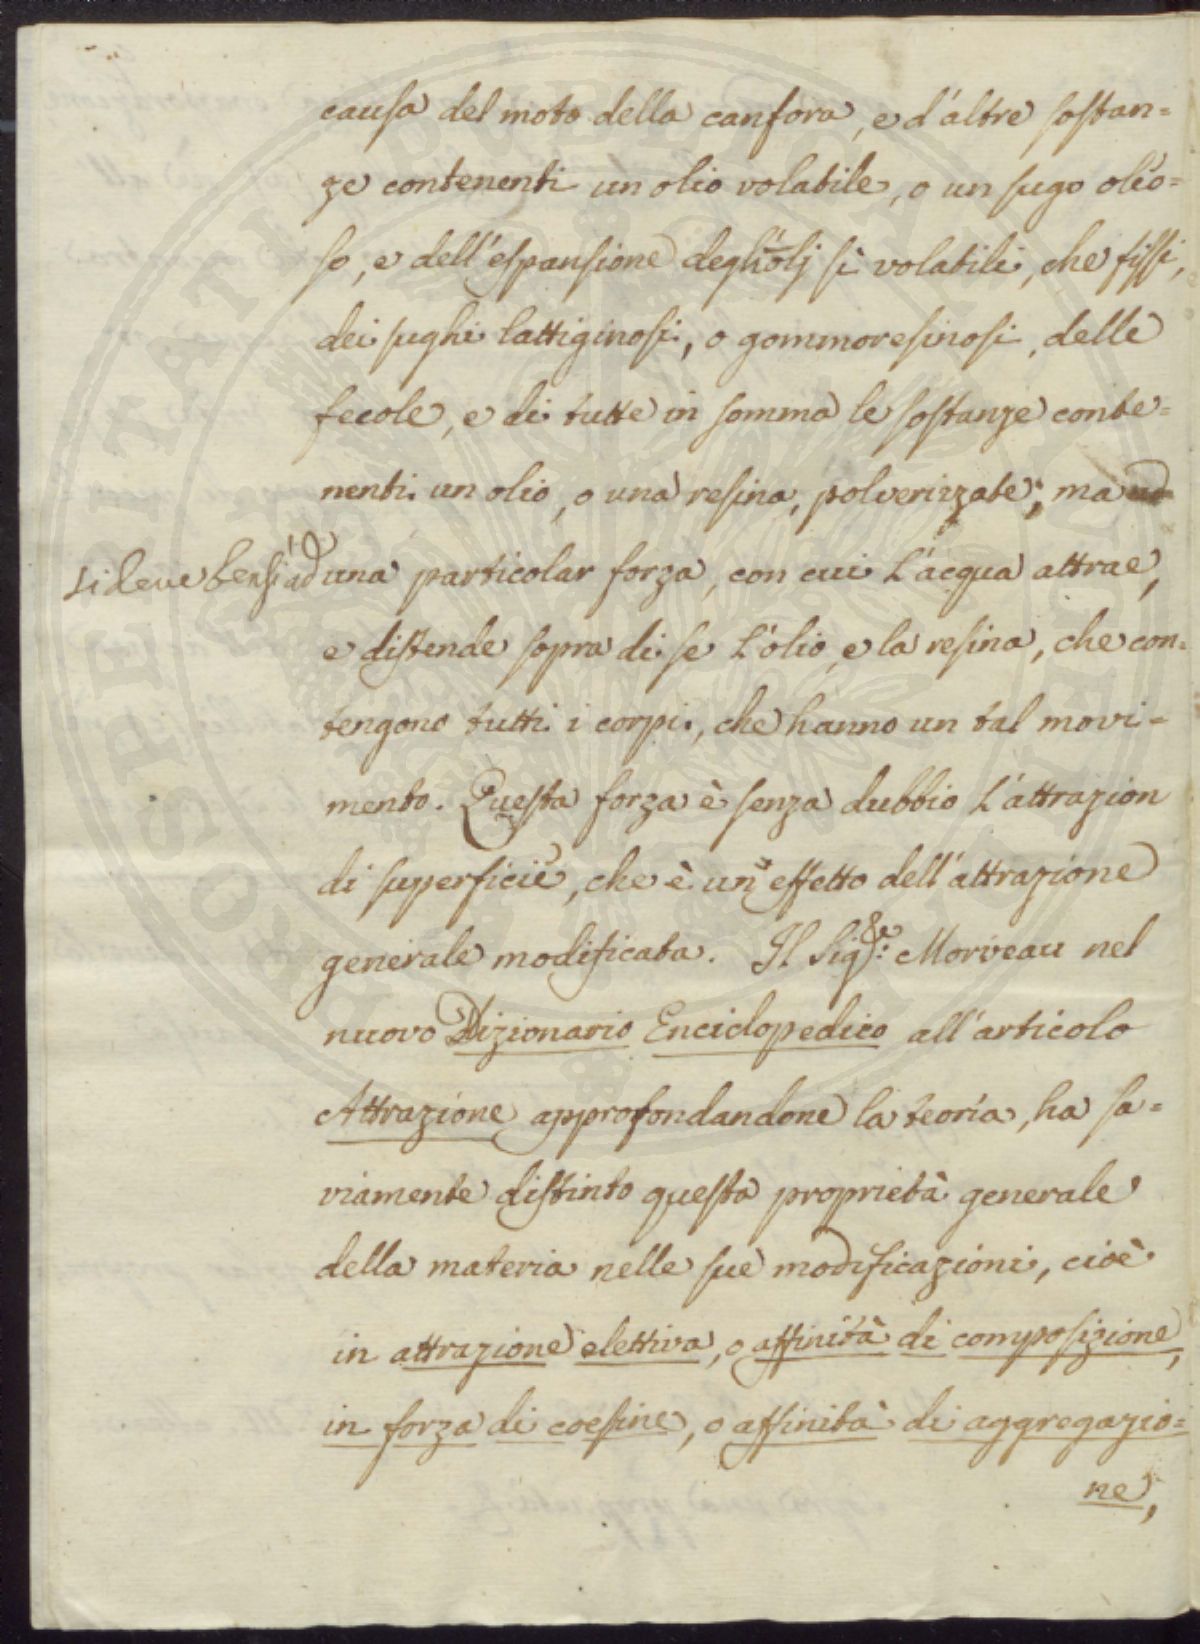 causa del moto della canfora, e d'altre sostan=
ze contenenti un olio volatile, o un sugo oleo=
so, e dell'espansione degli olj sì volatili, che fissi,
dei sughi lattiginosi, o gommoresinosi, delle
fecole, e di tutte in somma le sostanze conte=
nenti un olio, o una resina, polverizzate; ma
si deve bensì ad una particolar forza, con cui L'acqua attrae,
e distende sopra di se L'olio, e la resina, che con=
tengono tutti i corpi, che hanno un tal movi=
mento. Questa forza è senza dubbio L'attrazion
di superficie, che è un effetto dell'attrazione
generale modificata. Il Sig.re Morveau nel
nuovo Dizionario Enciclopedico all'articolo
Attrazione approfondandone la teoria, ha sa=
viamente distinto questa proprietà generale
della materia nelle sue modificazioni, cioè
in attrazione elettiva, o affinità di composizione,
in forza di coesine, o affinità di aggregazio=
ne,
PROSPERITATI PUBLICAE AUGENDAE